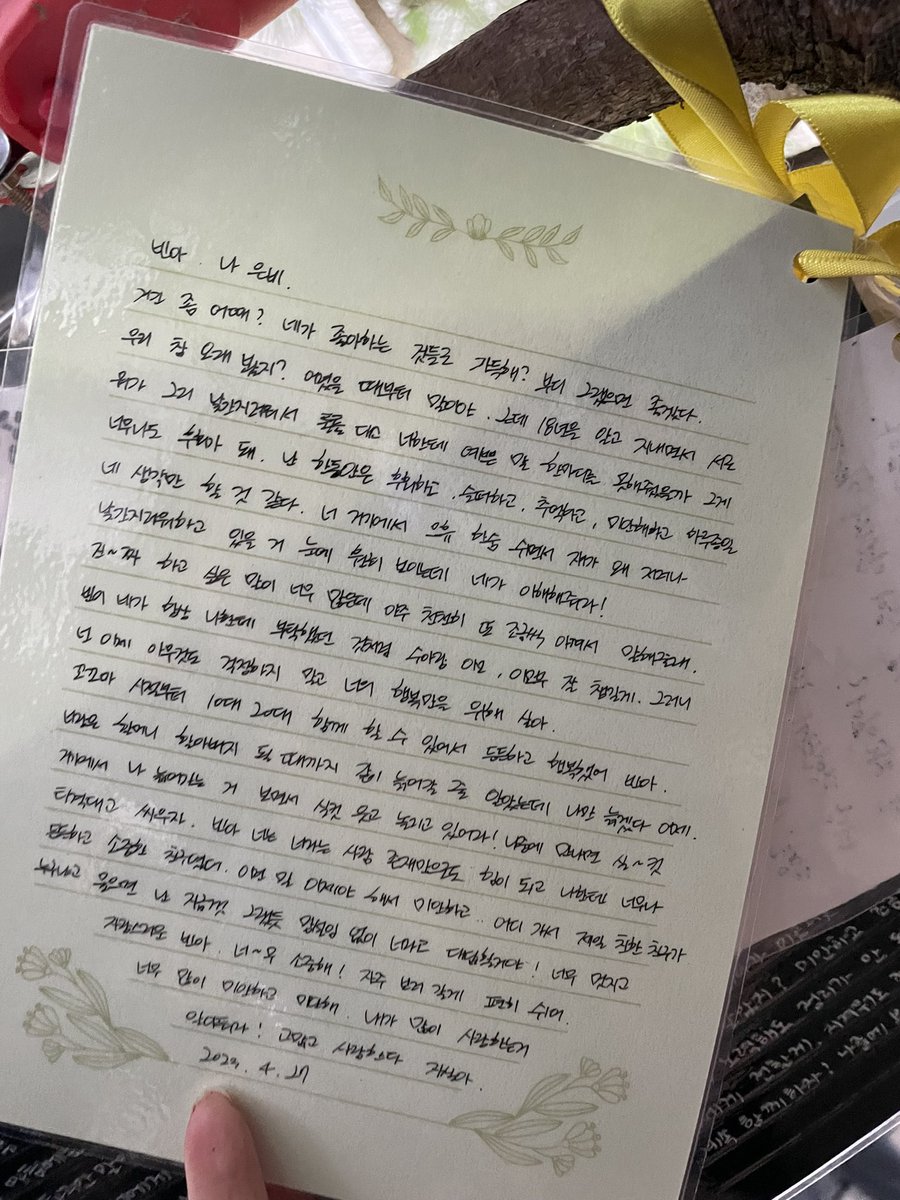 빈아. 나 은비.
거긴 좀 어때? 네가 좋아하는 것들로 가득해? 부디 그랬으면 좋겠다.
우리 참 오래 봤지? 어렸을 때부터 말이야. 근데 18년을 알고 지내면서 서로
뭐가 그리 낯간지러워서 툴툴대고 너한테 예쁜 말 한마디를 못해줬을까 그게
너무나도 후회가 돼. 난 한동안은 후회하고, 슬퍼하고, 추억하고, 미안해하고 하루종일
네 생각만 할 것 같다. 너 거기에서 으휴 한숨 쉬면서 쟤가 왜 저러나
낯간지러워하고 있을 거 눈에 훤히 보이는데 네가 이해해줘라!
진~짜 하고 싶은 말이 너무 많은데 아주 천천히 또 조금씩 와서 말해줄래.
빈이 네가 항상 나한테 부탁했던 것처럼 수아랑 이모, 이모부 잘 챙길게. 그러니
넌 이제 아무것도 걱정하지 말고 너의 행복만을 위해 살아.
꼬꼬마 시절부터 10대 20대 함께 할 수 있어서 든든하고 행복했어 빈아.
너랑은 할머니 할아버지 될 때까지 같이 늙어갈 줄 알았는데 나만 늙겠다 이제.
게에서 나 늙어가는 거 보면서 실컷 웃고 놀리고 있어라! 나중에 만나면 실~컷
티격대고 싸우자. 빈아 너는 너라는 사람 존재만으로도 힘이 되고 나한테 너무나
든든하고 소중한 친구였다. 이런 말 이제야 해서 미안하고.. 어디 가서 제일 친한 친구가
누구냐고 물으면 난 지금껏 그랬듯 망설임 없이 너라고 대답할거야! 너무 멋지고
자랑스러운 빈아. 너~무 소중해! 자주 보러 갈게 편히 쉬어.
너무 많이 미안하고 미안해. 내가 많이 사랑하는거
알아둬라! 고맙고 사랑한다 자식아.
2023. 4. 27